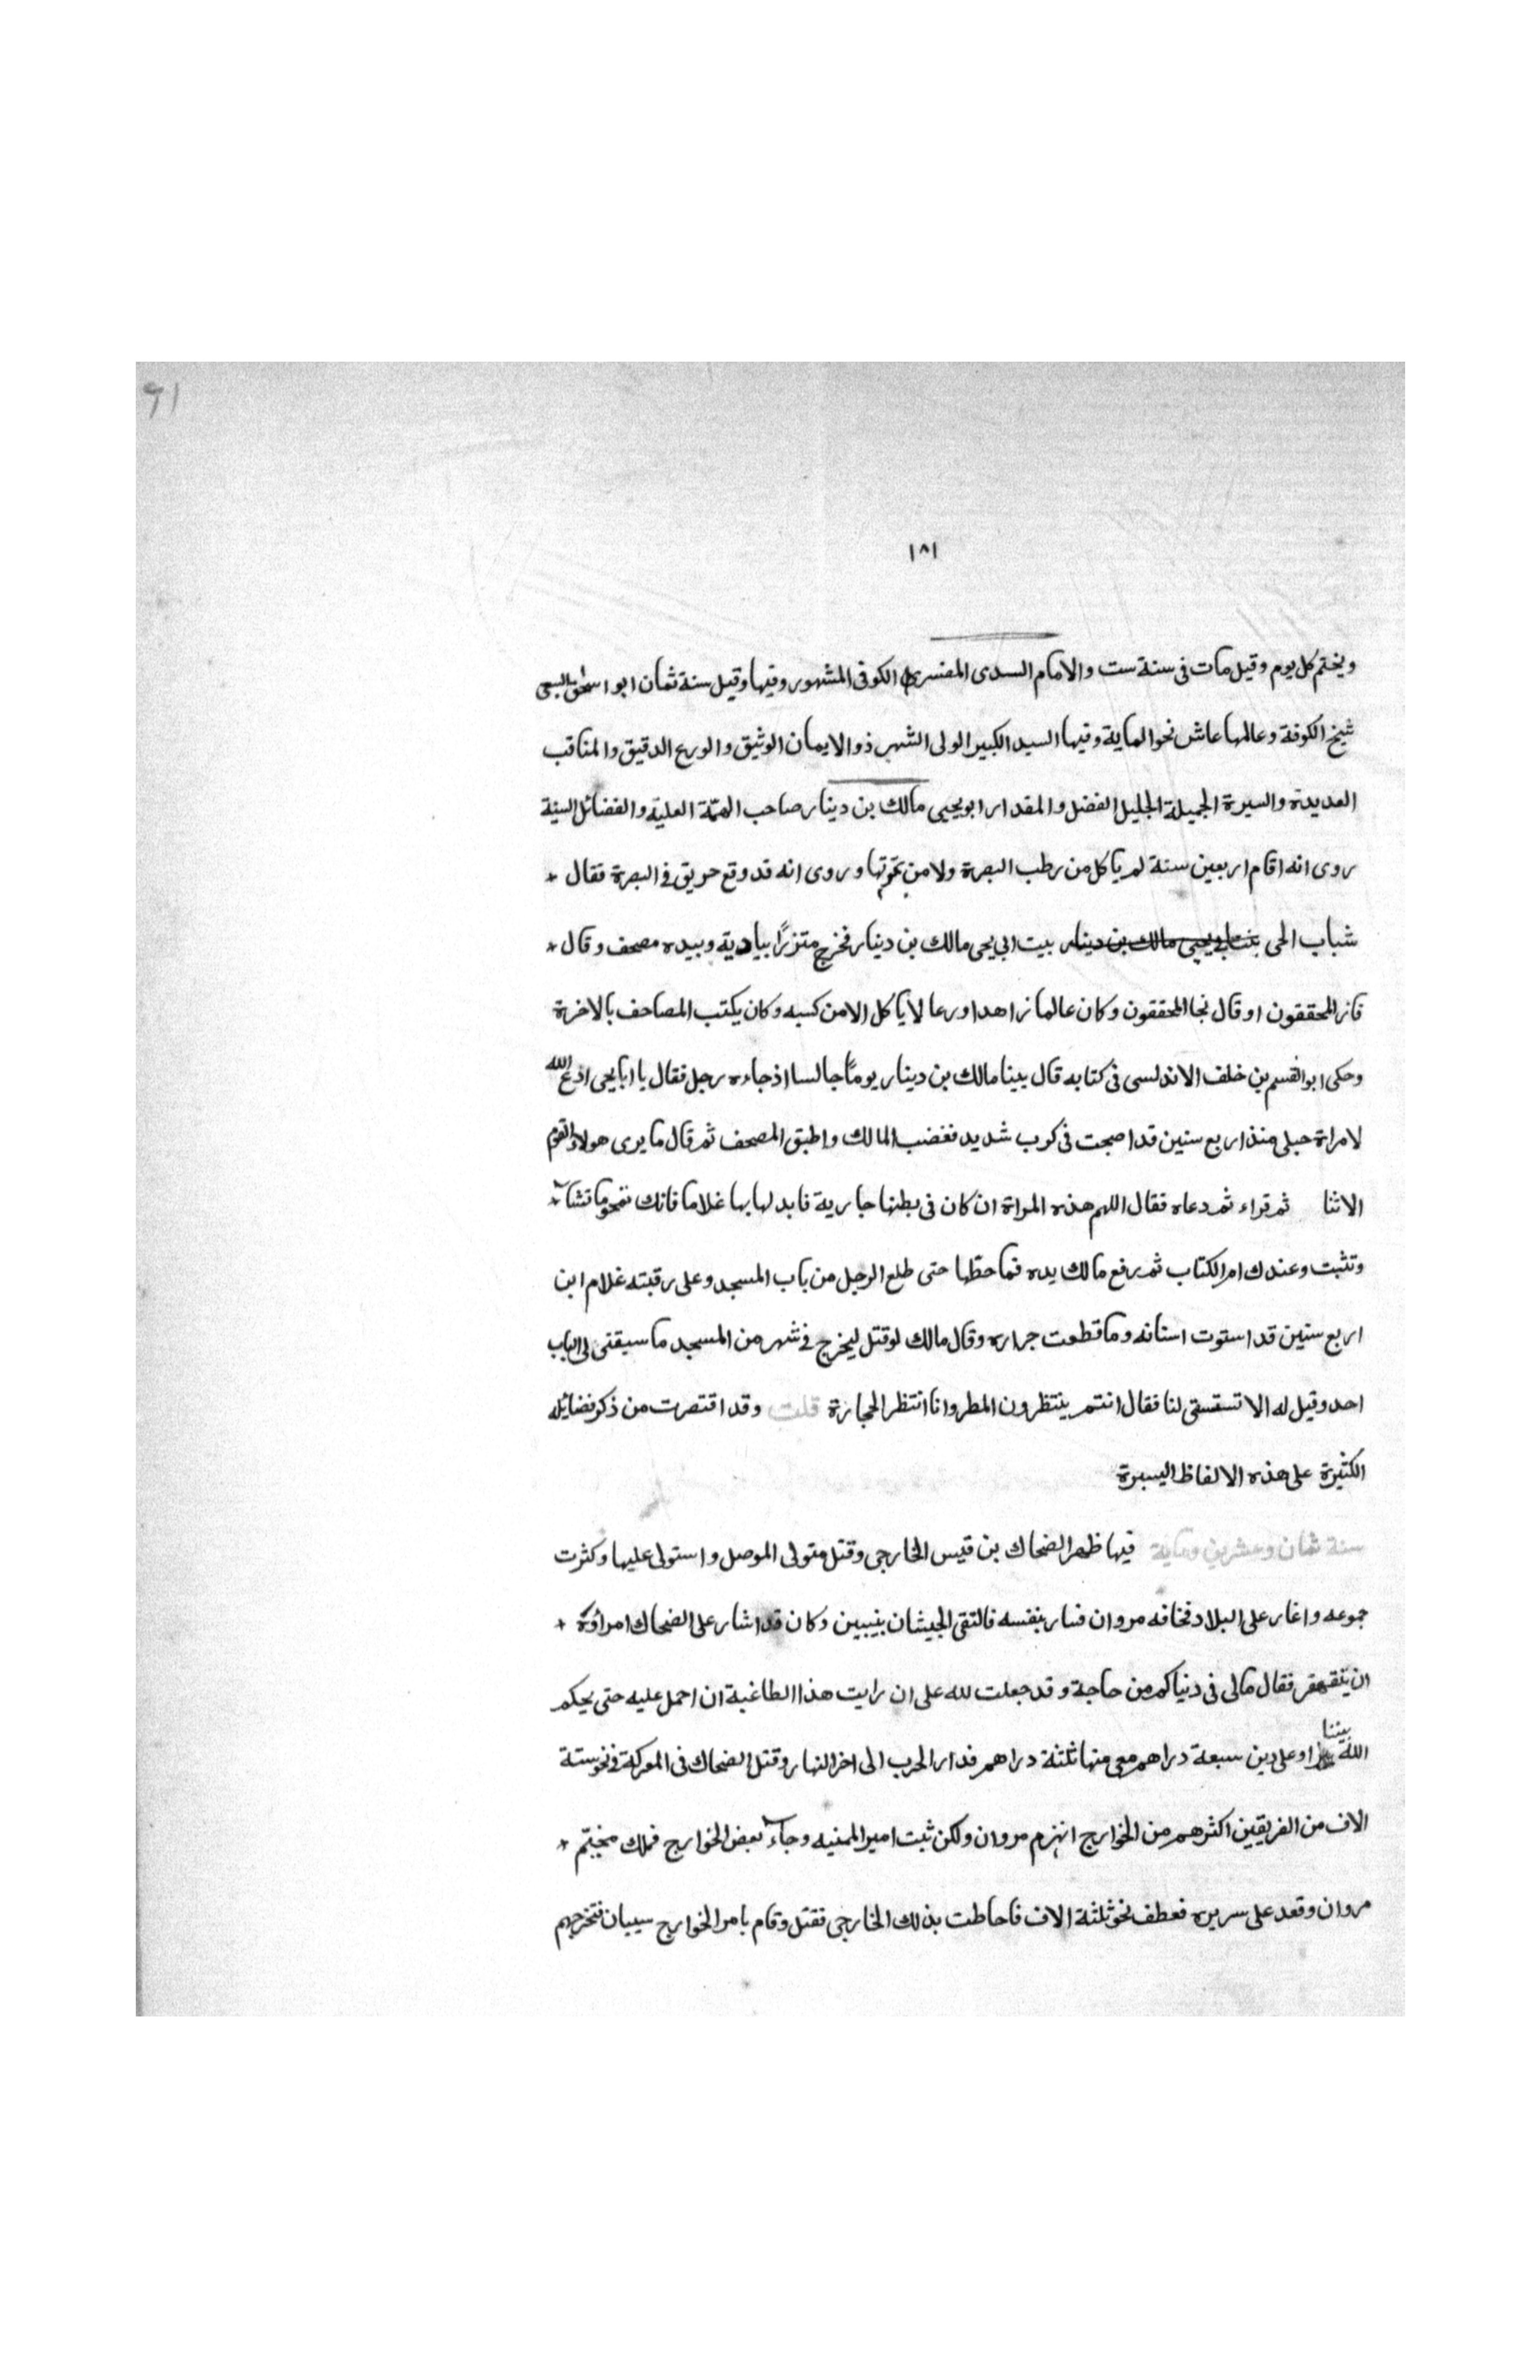 91
١٨١
ويختم كل يوم وقيل مات فى سنة ست والامام السدى المفسر الكوفى المشهور وفيها وقيل سنة ثمان ابو اسحق السبيعى
شيخ الكوفة وعالمها عاش نحو الماية وفيها السيد الكبير الولى الشهير ذو الايمان الوثيق والورع الدقيق والمناقب
العديدة والسيرة الجميلة الجليل الفضل والمقدار ابو يحيى مالك بن دينار صاحب الهمّة العلية والفضائل السنية
روى انه اقام اربعين سنة لم ياكل من رطب البصرة ولا من تمرتها وروى انه قد وقع حريق فى البصرة فقال
شباب الحى بيت ابى يحيى مالك بن دينار فخرج متزرًا ببادية وبيده مصحف وقال
فاز المحققون او قال نجا المحققون وكان عالما زاهدا ورعا لا ياكل الا من كسبه وكان يكتب المصاحف بالاخرة
وحكى ابو القسم بن خلف الاندلسى فى كتابه قال بينا مالك بن دينار يوماً جالسا اذ جاءه رجل فقال يا ابا يحيى ادع الله
لامراة حبلى منذ اربع سنين قد اصبحت فى كرب شديد فغضب المالك واطبق المصحف ثم قال ما يرى هولاء القوم
الا انا ثم قراء ثم دعاه فقال اللهم هذه المراة ان كان فى بطنها جارية فابدلها بها غلاما فانك تمحو ما تشآء
وتثبت وعندك ام الكتاب ثم رفع مالك يده فما حطها حتى طلع الرجل من باب المسجد وعلى رقبته غلام ابن
اربع سنين قد استوت اسنانه وما قطعت جراره وقال مالك لو قتل ليخرج فى شهر من المسجد ما سبقنى الى الباب
احد وقيل له الا تسقسقى لنا فقال انتم ينتظرون المطر وانا انتظر الحجارة قلت وقد اقتصرت من ذكر فضائله
الكثيرة على هذه الالفاظ اليسيرة
سنة ثمان وعشرين وماية فيها ظهر الضحاك بن قيس الخارجى وقتل متولى الموصل واستولى عليها وكثرت
جموعه واغار على البلاد فخافه مروان فسار بنفسه فالتقى الجيشان بنيبين وكان قد اشار على الضحاك امراؤه
ان يتقهقر فقال مالى فى دنياكم من حاجة وقد جعلت لله على ان رايت هذا الطاغية ان احمل عليه حتى يحكم
الله بيننا وعلى دين سبعة دراهم معى منها ثلثة دراهم فدار الحرب الى اخر النهار وقتل الضحاك فى المعركة فى نحو ستة
الاف من الفريقين اكثرهم من الخوارج انهزم مروان ولكن ثبت امير الميمنه وجآء بعض الخوارج فملك مخيّم
مروان وقعد على سريره فعطف نحو ثلثة الاف فاحاطت بذلك الخارجى فقتل وقام بامر الخوارج سيبان فتخرجهم